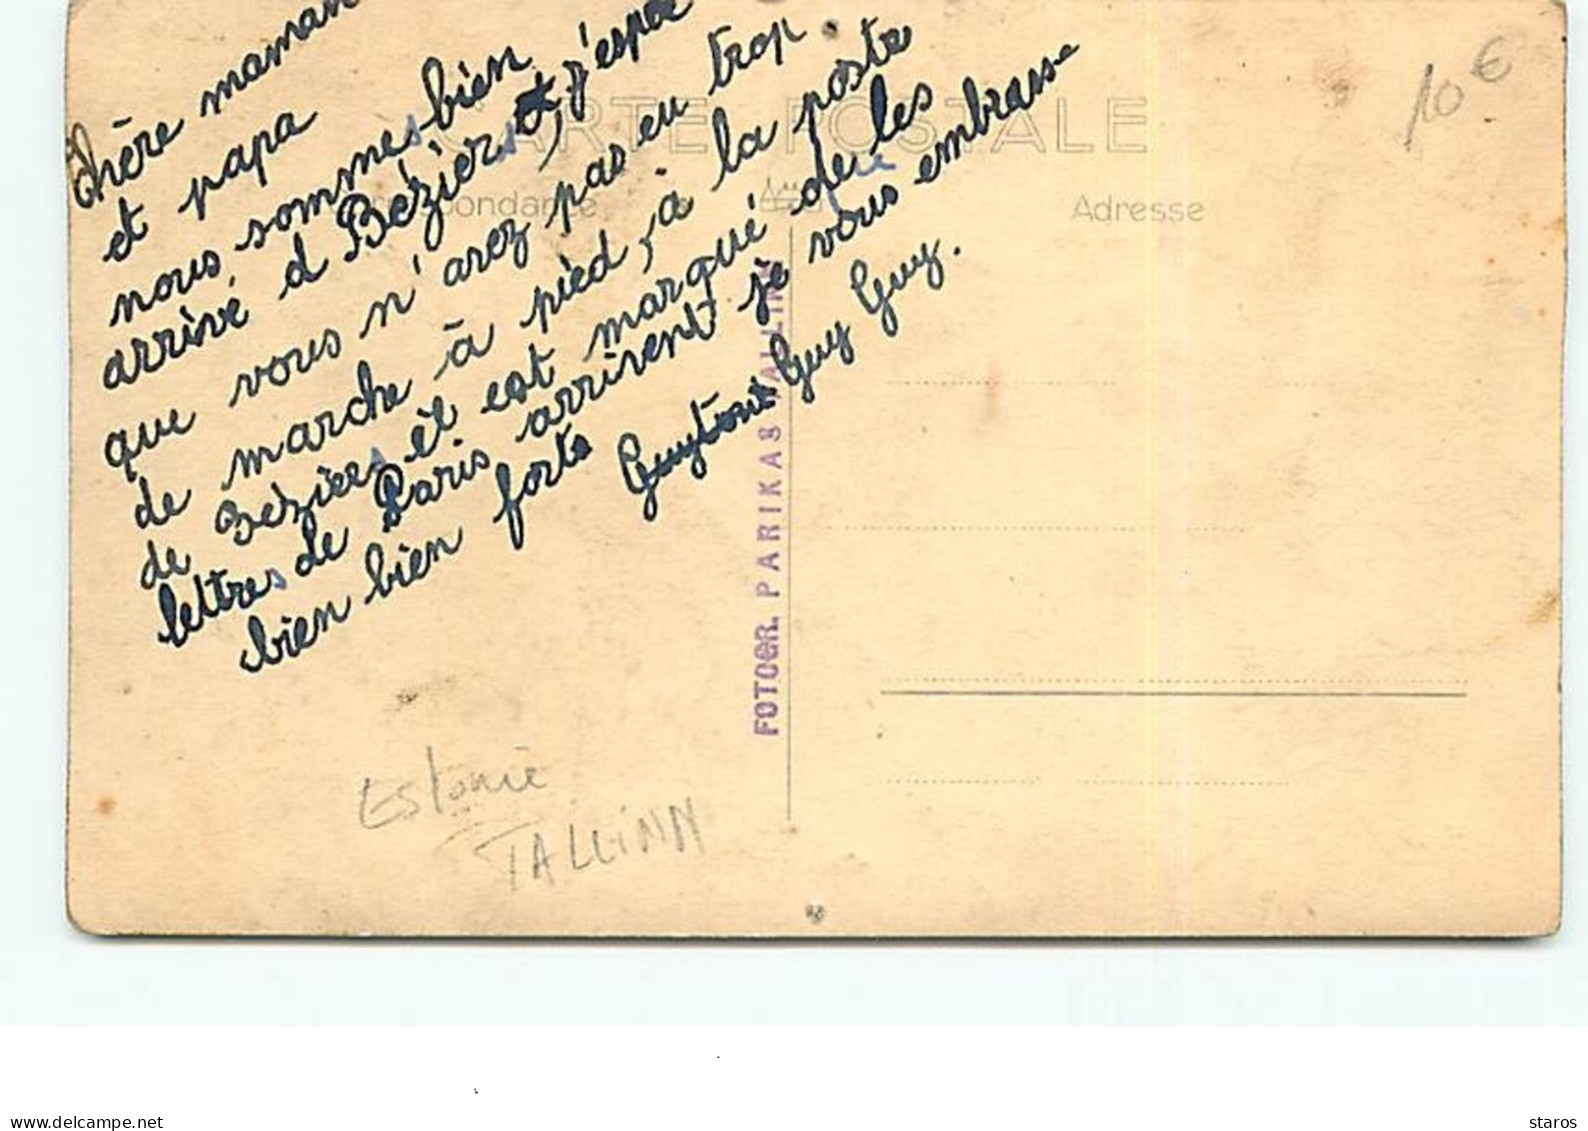 Chère maman
et papa
nous sommes bien
arrivé d Béziers et j'espère
que vous n'avez pas eu trop
de marche à pied, à la poste
de Béziers il est marqué que les
lettres de Paris arrivent je vous embrasse
bien bien forte Guy Guy.
CARTE POSTALE
Correspondance
Adresse
10 €
FOTOGR. PARIKAS TALLINN
Estonie
TALLINN
www.delcampe.net
staros